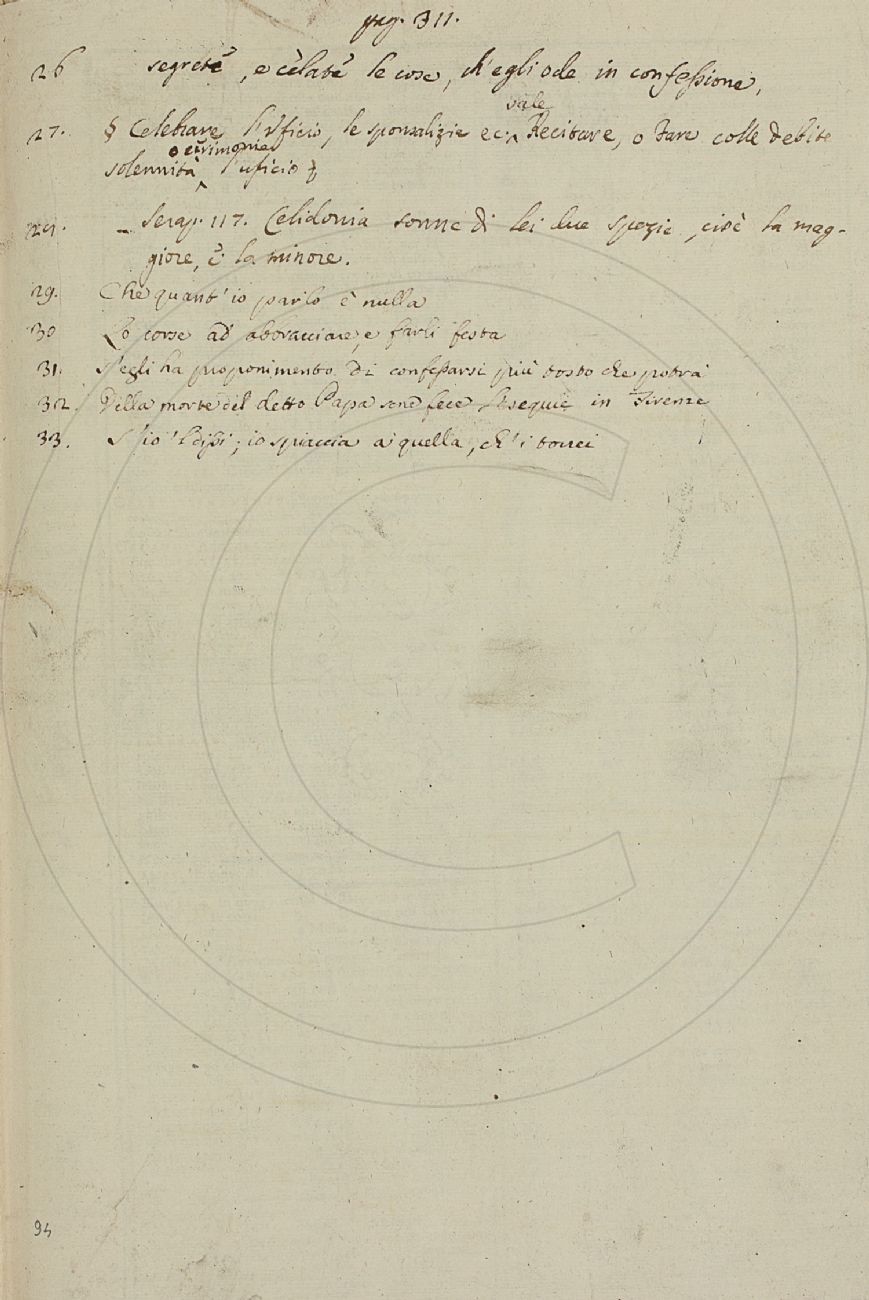 pag. 311.
26 segrete, e celate le cose, ch'egli ode in confessione,
vale
27. § Celebrare l'ufficio, le sponsalizie ec: Recitare, o Fare colle debite
o cerimonie
solennità l'uficio
Serap. 117. Celidonia sonne di lei due spezie, cioè la mag-
giore, e la minore.
29. Che quant'io parlo è nulla
30 Lo corse ad abbracciare, e farli festa
31. S'egli ha proponimento di confessarsi più tosto che potrà
32. Della morte del detto Papa sene fece l'esequie in Firenze
33. S'io 'l dissi; io spiaccia a quella, ch'i torrei
94